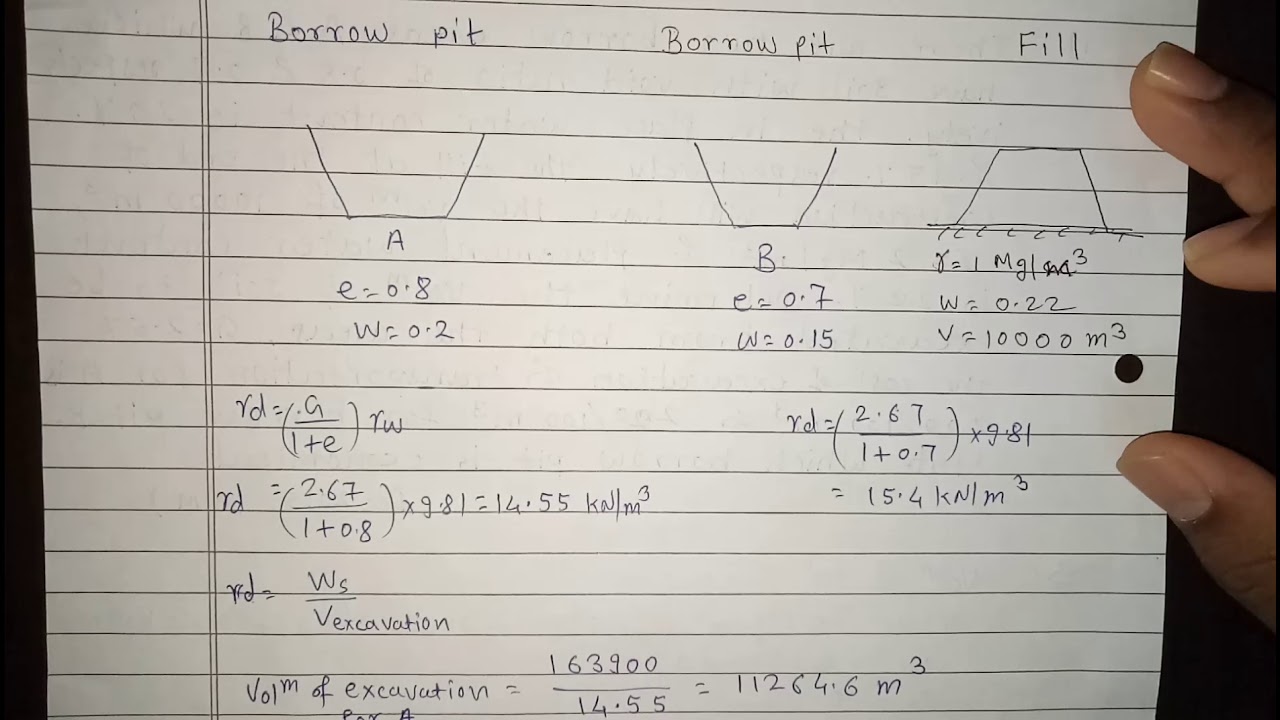 Borrow pit Borrow pit Fill
A B.
e = 0.8 e = 0.7 r = 1 Mg/m³
w = 0.2 w = 0.15 w = 0.22
V = 10000 m³
rd = (G / 1+e) rw
rd = (2.67 / 1+0.7) × 9.81
= 15.4 kN/m³
rd = (2.67 / 1+0.8) × 9.81 = 14.55 kN/m³
rd = Ws / Vexcavation
Volᵐ of excavation = 163900 / 14.55 = 11264.6 m³
For A